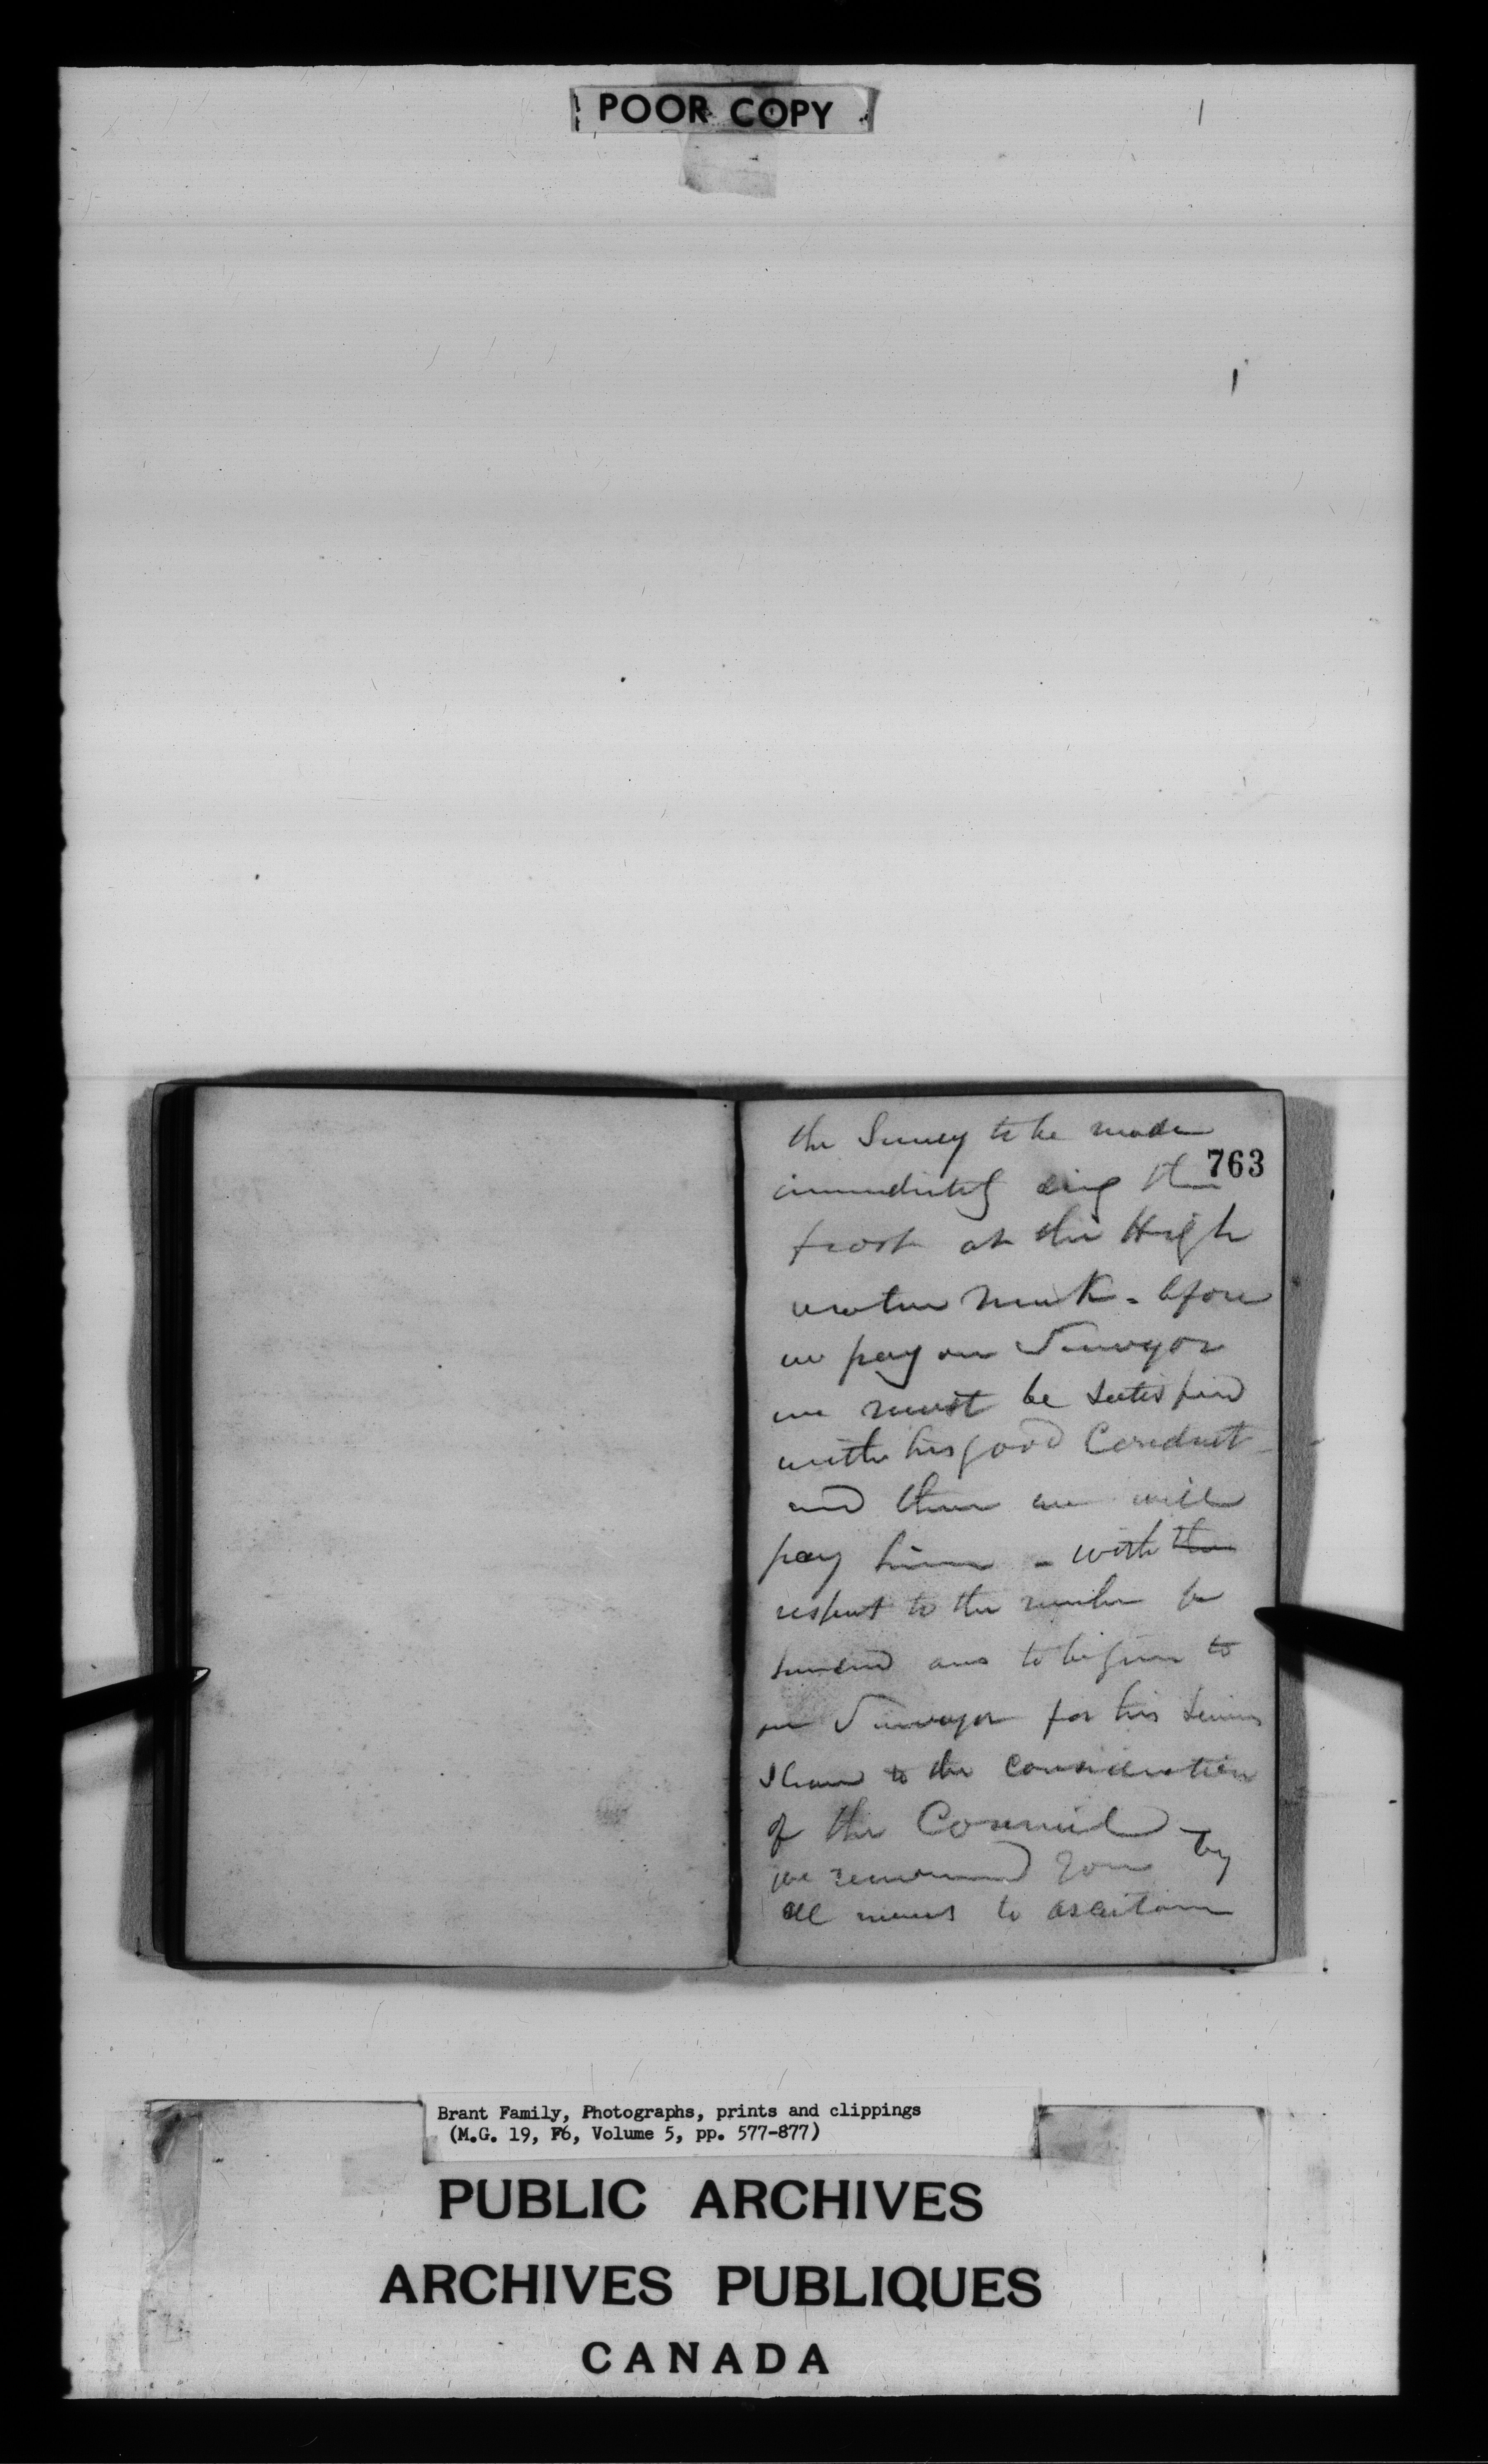 POOR COPY
the Survey to be made
763
immediately the
frost at the High
water mark - before
we pay our Surveyor
we must be satisfied
with his good Conduct -
and then we will
pay him - with the
respect to the number
hundred to be given to
our Surveyor for his services
I leave to the consideration
of the Council - by
we recommend you
all means to ascertain
Brant Family, Photographs, prints and clippings
(M.G. 19, F6, Volume 5, pp. 577-877)
PUBLIC ARCHIVES
ARCHIVES PUBLIQUES
CANADA